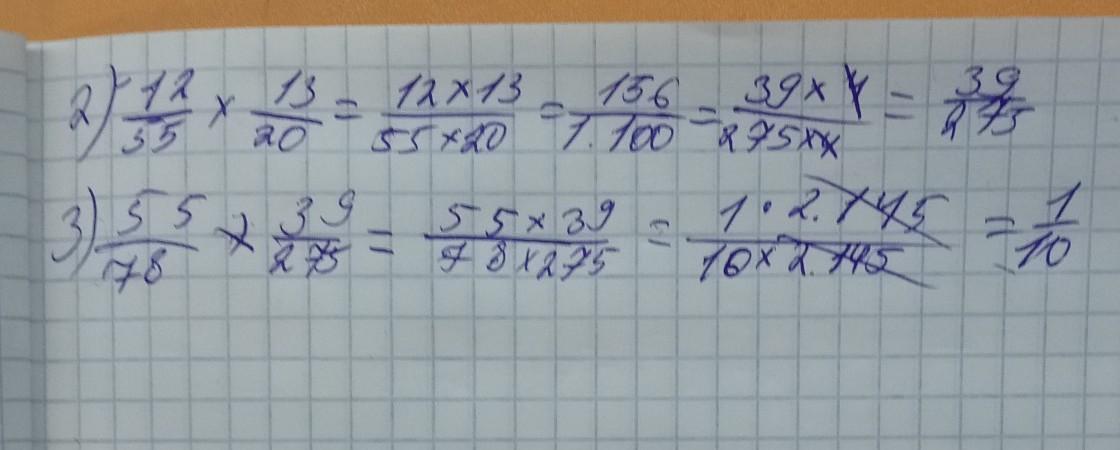 2) 12/55 × 13/20 = 12×13/55×20 = 156/1.100 = 39×4/275×4 = 39/275
3) 55/78 × 39/275 = 55×39/78×275 = 1·2.145/10×2.145 = 1/10